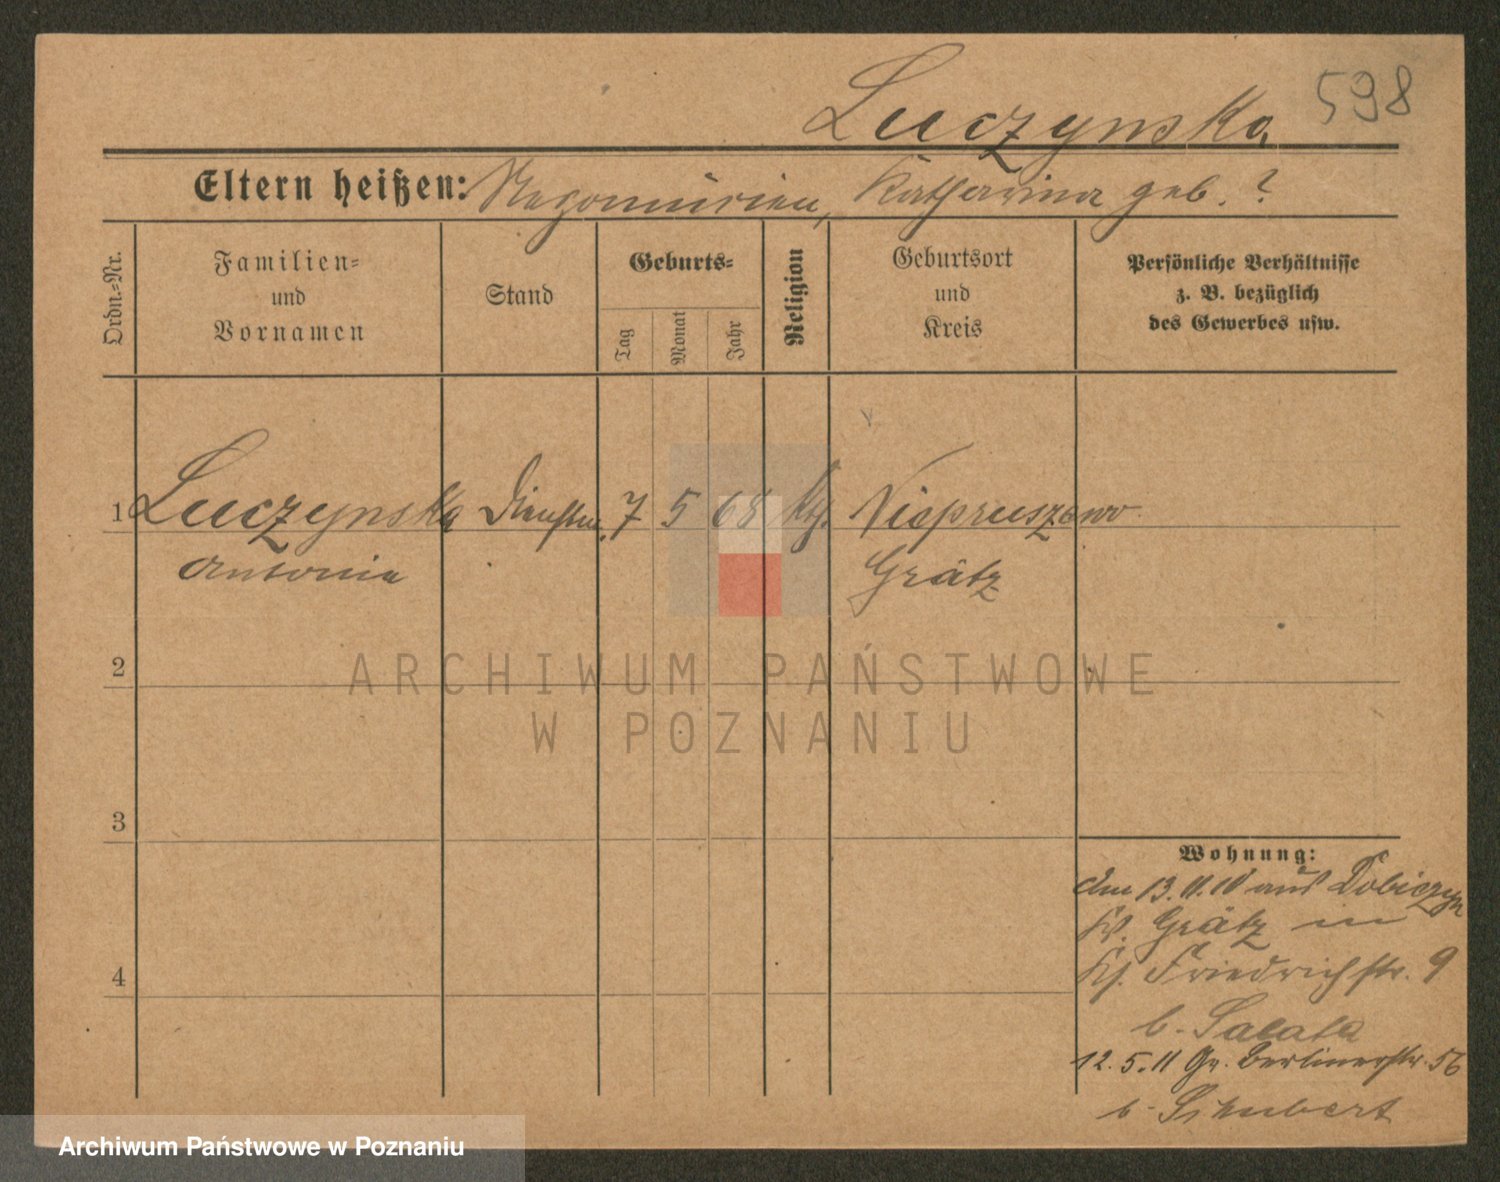 598
Luczynska
Eltern heißen: Katharina geb. ?
Ordn.-Nr.
Familien-
und
Vornamen
Stand
Geburts-
Tag
Monat
Jahr
Religion
Geburtsort
und
Kreis
Persönliche Verhältnisse
z. B. bezüglich
des Gewerbes usw.
1 Luczynska Dienstm. 7 5 68 kth. Niepruszewo
Antonia Grätz
2
3
4
Wohnung:
Am 13.11.10 aus Dobiezyn
Kr. Grätz in
Friedrichstr. 9
b. Salata
12.5.11 Gr. Berlinerstr. 56
b. Schubert
ARCHIWUM PAŃSTWOWE
W POZNANIU
Archiwum Państwowe w Poznaniu